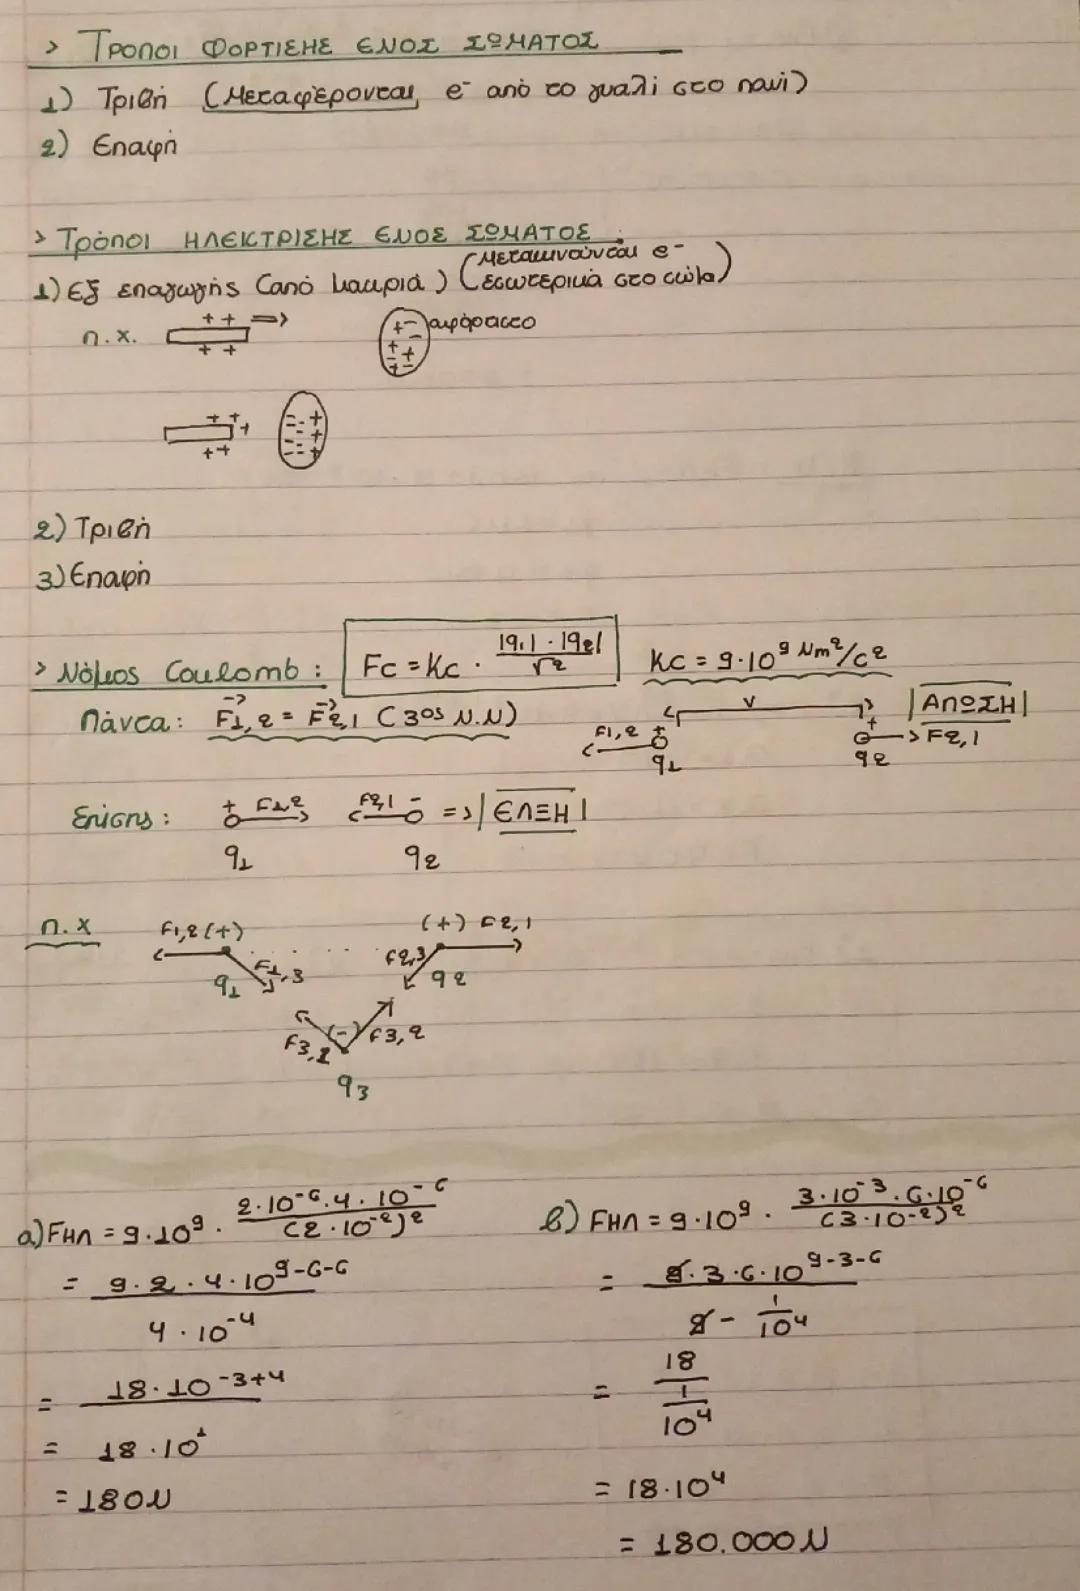 > Τρόποι ΦΟΡΤΙΣΗΣ ΕΝΟΣ ΣΩΜΑΤΟΣ
1) Τριβή (Μεταφέρονται e⁻ από το γυαλί στο πανί)
2) Επαφή
> Τρόποι ΗΛΕΚΤΡΙΣΗΣ ΕΝΟΣ ΣΩΜΑΤΟΣ :
1) Εξ επαγωγής (από μακριά) (Μετακινούνται e⁻ εσωτερικά στο σώμα)
π.χ. + + => + + + - αφόρτιστο
+ + + + + - - + - - + - - +
2) Τριβή
3) Επαφή
> Νόμος Coulomb : Fc = Kc · |q1| · |q2| / r² Kc = 9·10⁹ Nm²/C²
Πάντα : F1,2 = F2,1 (3ος Ν.Ν) r |ΑΠΩΣΗ|
F1,2 + q1 + q2 F2,1
Επίσης : + F1,2 F2,1 - => |ΕΛΞΗ|
q1 q2
π.χ F1,2 (+) (+) F2,1
q1 F1,3 F2,3 q2
F3,1 (-) F3,2
q3
α) FΗΛ = 9·10⁹ · 2·10⁻⁶·4·10⁻⁶ / (2·10⁻²)²
= 9·2·4·10⁹⁻⁶⁻⁶ / 4·10⁻⁴
= 18·10⁻³⁺⁴
= 18·10¹
= 180N
β) FΗΛ = 9·10⁹ · 3·10⁻³·6·10⁻⁶ / (3·10⁻²)²
= 9·3·6·10⁹⁻³⁻⁶ / 9 - 1/10⁴
= 18 / 1/10⁴
= 18·10⁴
= 180.000N